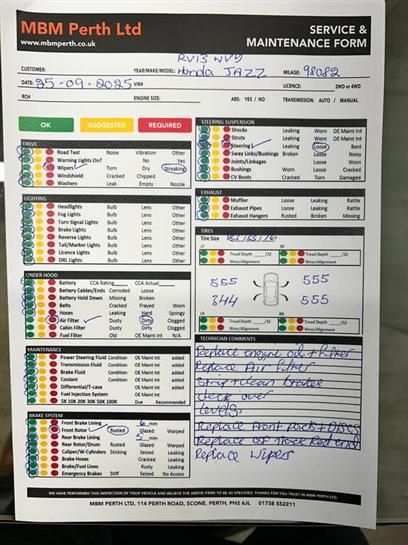 MBM Perth Ltd
www.mbmperth.co.uk
SERVICE &
MAINTENANCE FORM
RV13 WVD
CUSTOMER: YEAR/MAKE/MODEL: Honda JAZZ MILEAGE: 98082
DATE: 25-09-2025 VIN# LICENCE: 2WD or 4WD
RO# ENGINE SIZE: ABS: YES / NO TRANSMISSION: AUTO / MANUAL
OK SUGGESTED REQUIRED
DRIVE
Road Test Noise Vibration Other
Warning Lights On? No Yes
Wipers Torn Dry Streaking
Windshield Cracked Chipped
Washers Leak Empty Nozzle
LIGHTING
Headlights Bulb Lens Other
Fog Lights Bulb Lens Other
Turn Signal Lights Bulb Lens Other
Brake Lights Bulb Lens Other
Reverse Lights Bulb Lens Other
Tail/Marker Lights Bulb Lens Other
Licence Lights Bulb Lens Other
DRL Lights Bulb Lens Other
UNDER HOOD
Battery CCA Rating CCA Actual
Battery Cables/Ends Corroded Loose
Battery Hold Down Missing Broken
Belts Cracked Frayed Worn
Hoses Leaking Hard Spongy
Air Filter Dusty Dirty Clogged
Cabin Filter Dusty Dirty Clogged
Fuel Filter Old OE Maint Int N/A
MAINTENANCE
Power Steering Fluid Condition OE Maint Int added
Transmission Fluid Condition OE Maint Int added
Brake Fluid Condition OE Maint Int added
Coolant Condition OE Maint Int added
Differential/T-case Condition OE Maint Int added
Fuel Injection System OE Maint Int
5K 10K 20K 30K 50K 100K Due Recommended
BRAKE SYSTEM
Front Brake Lining 6 mm
Front Rotor Rusted Glazed Warped
Rear Brake Lining 5 mm
Rear Rotor/Drum Rusted Glazed Warped
Caliper/W Cylinders Sticking Seized Leaking
Brake Hoses Cracked Leaking
Brake/Fuel Lines Rusty Leaking
Emergency Brakes Stiff Seized No Access
STEERING SUSPENSION
Shocks Leaking Worn OE Maint Int
Struts Leaking Worn OE Maint Int
Steering Leaking Loose Bent
Sway Links/Bushings Broken Loose Noisy
Joints/Linkages Loose Worn
Bushings Worn Loose Cracked
CV Boots Cracked Torn Damaged
EXHAUST
Muffler Leaking Loose Rattling
Exhaust Pipes Leaking Loose Rattling
Exhaust Hangers Rusted Broken Missing
TIRES
Tire Size
LF Tread Depth /32 RF Tread Depth /32
Wear/Alignment Wear/Alignment
555 555
344 555
LR Tread Depth /32 RR Tread Depth /32
Wear/Alignment Wear/Alignment
TECHNICIAN COMMENTS
Replace engine oil + filter
Replace Air filter
Strip + clean brakes
check over
levels
Replace front pads + DISCS
Replace
Replace wipers
WE HAVE PERFORMED THIS INSPECTION OF YOUR VEHICLE AND BELIEVE THE ABOVE ITEMS TO BE AS SPECIFIED. THANKS FOR YOU TRUST IN MBM PERTH LTD.
MBM PERTH LTD, 114 PERTH ROAD, SCONE, PERTH, PH2 6JL 01738 552211